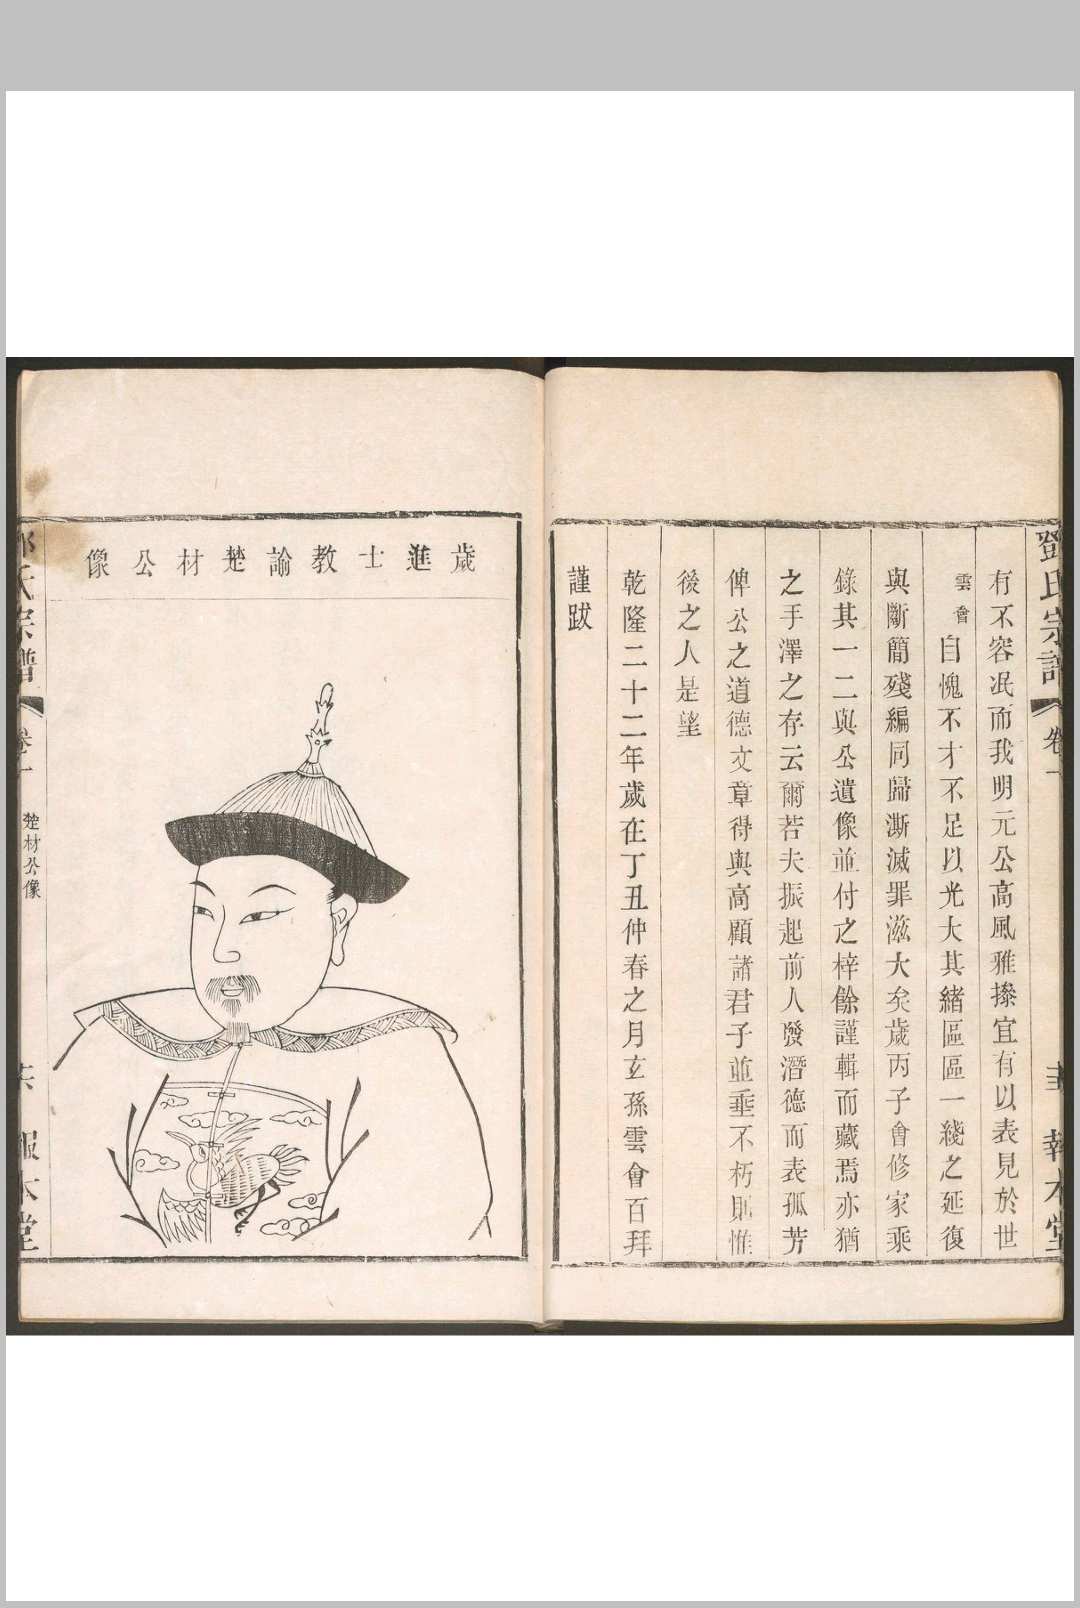 鄧氏宗譜
卷一
有不容泯而我明元公高風雅操宜有以表見於世
雲會自愧不才不足以光大其緒區區一綫之延復
與斷簡殘編同歸澌滅罪滋大矣歲丙子會修家乘
錄其一二與公遺像並付之梓餘謹輯而藏焉亦猶
之手澤之存云爾若夫振起前人發潛德而表孤芳
俾公之道德文章得與高顧諸君子並垂不朽則惟
後之人是望
乾隆二十二年歲在丁丑仲春之月玄孫雲會百拜
謹跋
歲進士教諭楚材公像
卷一
楚材公像